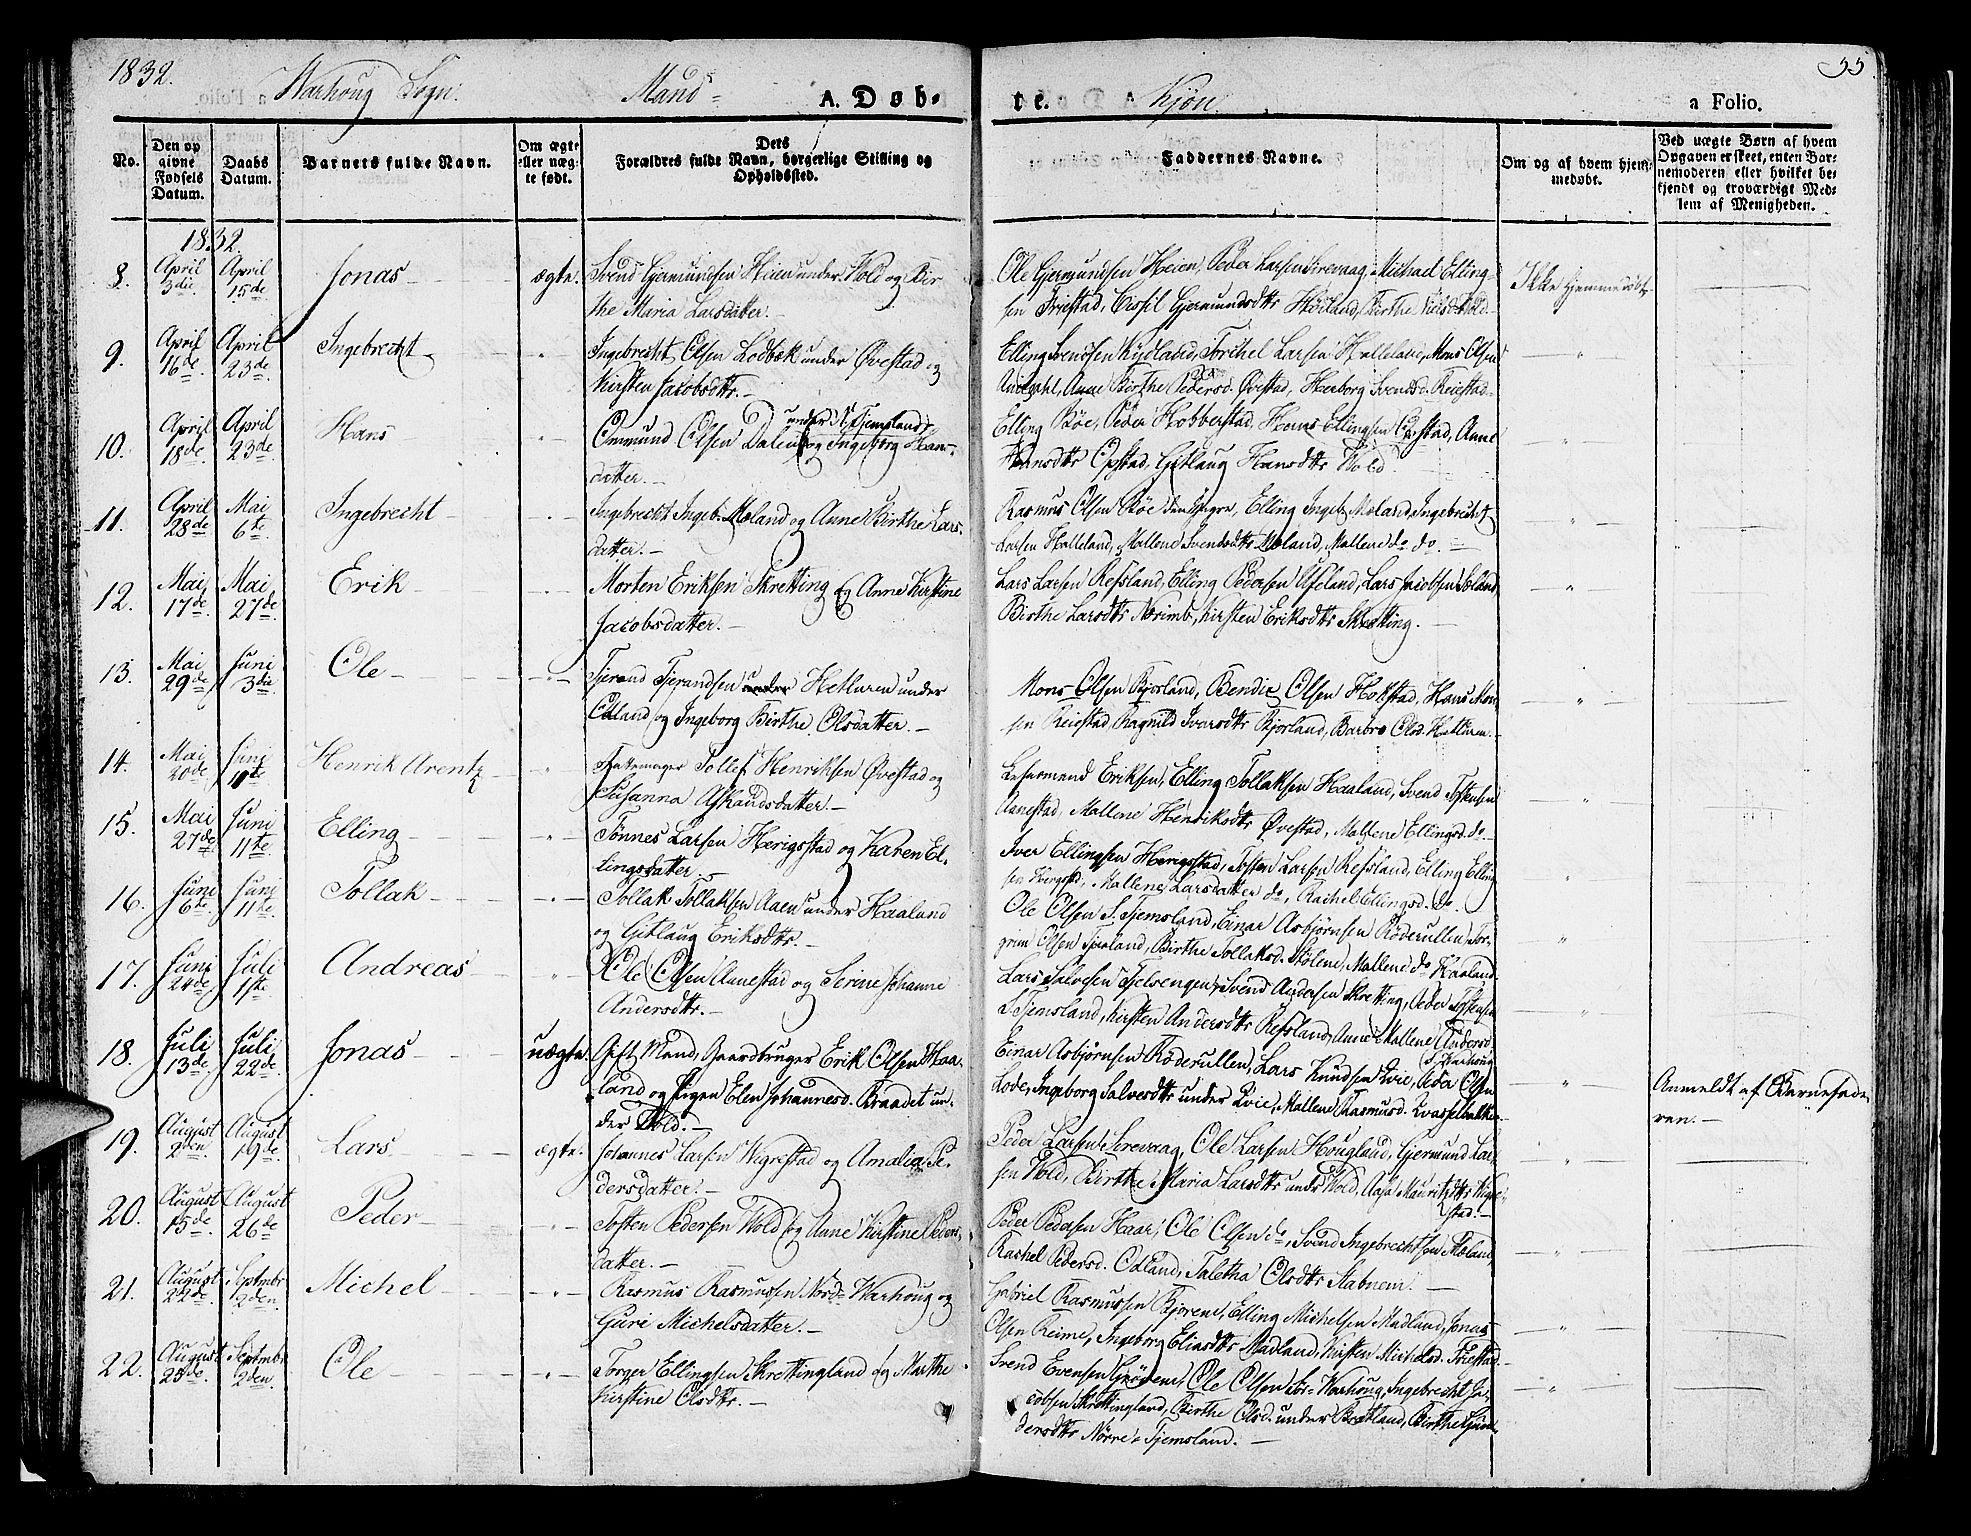 1832. Warhoug Sogn. Mand- A. Døb- te. Kjøn a Folio. 55
No.
Den op givne Fødsels Datum.
Daabs Datum.
Barnets fulde Navn.
Om ægte eller uæg- te født.
Dets Forældres fulde Navn, borgerlige Stilling og Opholdssted.
Faddernes Navne.
Om og af hvem hjem- medøbt.
Ved uægte Børn af hvem Opgaven er skeet, enten Bar- nemoderen eller hvilket be- kjendt og troværdigt Med- lem af Menigheden.
1832.
8. April 3die April 15de Jonas ægte. Svend Gjermundsen Heien under Wold og Bir-
the Maria Larsdatter.
Ole Gjermundsen Heien, Peder Larsen Sirevaag, Michael Elling-
sen Friestad, Cissil Gjermundsdtr Høiland, Birthe Nielsd. Wold.
Ikke hjemmedøbt
9. April 16de April 23de Ingebrecht Ingebrecht Olsen Lodbæk under Øvestad og
Kirsten Jacobsdtr.
Elling Svendsen Kydland, Torchel Larsen Halleland, Mons Olsen
Aardahl, Anne Birthe Pedersd. Øvestad, Herborg Svendsd. Reiestad
10. April 18de April 23de Hans Ommund Olsen Dalen under N. Tjemsland og Ingeborg Hans-
datter.
Elling Bøe, Peder Hobberstad, Hans Ellingsen Opstad, Anne
Hansdtr Opstad, Gitlaug Hansdtr Wold
11. April 28de Mai 6te Ingebrecht Ingebrecht Ingeb. Møland og Anne Birthe Lars-
datter.
Rasmus Olsen Bøe den Yngre, Elling Ingeb. Møland, Ingebrecht
Larsen Halleland, Mallene Svendsdtr Møland, Mallene do do.
12. Mai 17de Mai 27de Erik Morten Eriksen Skretting og Anne Kirstine
Jacobsdatter.
Lars Larsen Refsland, Elling Pedersen Ueland, Lars Jacobsen
Birthe Larsdtr Norimb, Kirsten Eriksdtr Skretting.
13. Mai 29de Juni 3die Ole Tjerand Tjerandsen under Hetluren under
Odland og Ingeborg Birthe Olsdatter.
Mons Olsen Bjorland, Bendix Olsen Hokstad, Hans Mon-
sen Reiestad, Ragnild Ivarsdtr Bjorland, Barbro Olsd. Hetluren.
14. Mai 20de Juni 11te Henrik Arentz Tollef Henriksen Øvestad og
Susanna Askaudsdatter.
Eriksen, Elling Tollaksen Haaland, Svend Tostensen
Aanestad, Mallene Henriksdtr Øvestad, Mallene Ellingsd. do
15. Mai 27de Juni 11te Elling Tønnes Larsen Herigstad og Karen El-
lingsdatter
Iver Ellingsen Herigstad, Tosten Larsen Refsland, Elling Elling-
sen Herigstad, Mallene Larsdatter do, Rachel Ellingsd. do.
16. Juni 6te Juni 11te Tollak Tollak Tollaksen Aaen under Haaland
og Gitlaug Eriksdtr.
Ole Olsen S. Tjemsland, Einar Asbjørnsen Røderullen, Tor-
grim Olsen Tjorland, Birthe Tollaksd. Stølene, Mallene do Haaland.
17. Juni 24de Juli 1ste Andreas Ole Olsen Aanestad og Serine Johanne
Andersdtr.
Lars Salvesen Selvengen, Svend Andersen Skretting, Peder Tostensen
S. Tjemsland, Kirsten Andersdtr Refsland, Anne Mallene Andersd.
S. Warhoug
18. Juli 13de Juli 22de Jonas uægte. Gift Mand, Gaardbruger Erik Olsen Haa-
land og Pigen Elen Johannesd. Braadet un-
der Wold.
Einar Asbjørnsen Røderullen, Lars Knudsen Qvie, Peder Olsen
Lode, Ingeborg Salvesdtr under Qvie, Mallene Rasmusd. Qvasselbakke
Anmeldt af Barnefade-
ren.
19. August 2den August 19de Lars ægte. Johannes Larsen Wigrestad og Amalia Pe-
dersdatter.
Peder Larsen Sirevaag, Ole Larsen Hougland, Gjermund Lar-
sen Wold, Birthe Maria Larsdtr under Wold, Aasa Mauritzdtr Wigre-
stad.
20. August 15de August 26de Peder Tosten Pedersen Wold og Anne Kirstine Peders-
datter.
Peder Pedersen Haar, Ole Olsen do, Svend Ingebrechtsen Møland,
Rachel Pedersd. Odland, Taletha Olsdtr Stabnem.
21. August 22de Septmbr 2den Michel Rasmus Rasmussen Nord-Warhoug og
Guri Michelsdatter.
Gabriel Rasmussen Bjorene, Elling Michelsen Madland, Jonas
Olsen Reime, Ingeborg Eliasdtr Madland, Kirsten Michelsd. Friestad
22. August 25de Septmbr 2den Ole Torger Ellingsen Skrettingland og Marthe
Kirstine Olsdtr.
Svend Evensen Grødem, Ole Olsen Sør-Warhoug, Ingebrecht Ja-
cobsen Skrettingland, Birthe Olsd. under Bratland, Birthe
dersdtr Nørre-Tjemsland.